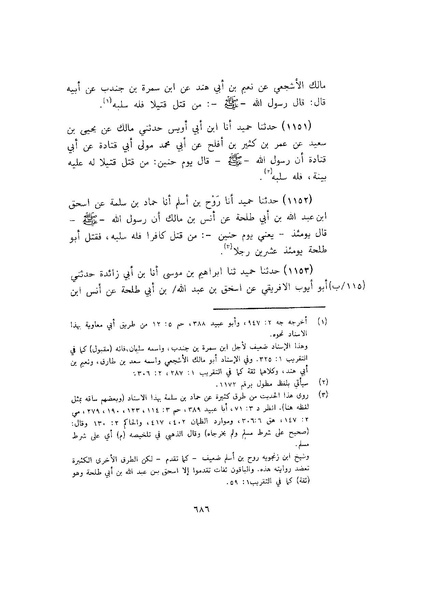 مالك الأشجعي عن نعيم بن أبي هند عن ابن سمرة بن جندب عن أبيه
قال: قال رسول الله -ﷺ -: من قتل قتيلا فله سلبه(١).
(١١٥١) حدثنا حميد أنا ابن أبي أويس حدثني مالك عن يحيى بن
سعيد عن عمر بن كثير بن أفلح عن أبي محمد مولى أبي قتادة عن أبي
قتادة أن رسول الله -ﷺ - قال يوم حنين: من قتل قتيلا له عليه
بينة، فله سلبه(٢).
(١١٥٢) حدثنا حميد أنا رَوْح بن أسلم أنا حماد بن سلمة عن اسحق
ابن عبد الله بن أبي طلحة عن أنس بن مالك أن رسول الله -ﷺ -
قال يومئذ - يعني يوم حنين -: من قتل كافرا فله سلبه، فقتل أبو
طلحة يومئذ عشرين رجلا(٣).
(١١٥٣) حدثنا حميد ثنا ابراهيم بن موسى أنا بن أبي زائدة حدثني
(١١٥/ب) أبو أيوب الافريقي عن اسحق بن عبد الله/ بن أبي طلحة عن أنس ابن
(١) أخرجه جه ٢: ٩٤٧، وأبو عبيد ٣٨٨، حم ٥: ١٢ من طريق أبي معاوية بهذا
الاسناد نحوه.
وهذا الإسناد ضعيف لأجل ابن سمرة بن جندب، واسمه سليمان، فانه (مقبول) كما في
التقريب ١: ٣٢٥. وفي الإسناد أبو مالك الأشجعي واسمه سعد بن طارق، ونعيم بن
أبي هند، وكلاهما ثقة كما في التقريب ١: ٢٨٧، ٢: ٣٠٦.
(٢) سيأتي بلفظ مطول برقم ١١٧٢.
(٣) روى هذا الحديث من طرق كثيرة عن حماد بن سلمة بهذا الاسناد (وبعضهم ساقه بمثل
لفظه هنا). انظر د ٣: ٧١، أبا عبيد ٣٨٩، حم ٣: ١١٤، ١٢٣، ١٩٠، ٢٧٩، مي
٢: ١٤٧، هق ٦: ٣٠٦، وموارد الظمآن ٤٠٢، ٤١٧، والحاكم ٢: ١٣٠ وقال:
(صحيح على شرط مسلم ولم يخرجاه) وقال الذهبي في تلخيصه (م) أي على شرط
مسلم.
وشيخ ابن زنجويه روح بن أسلم ضعيف - كما تقدم - لكن الطرق الأخرى الكثيرة
تعضد روايته هذه. والباقون ثقات تقدموا إلا اسحق بن عبد الله بن أبي طلحة وهو
(ثقة) كما في التقريب ١: ٥٩.
٦٨٦